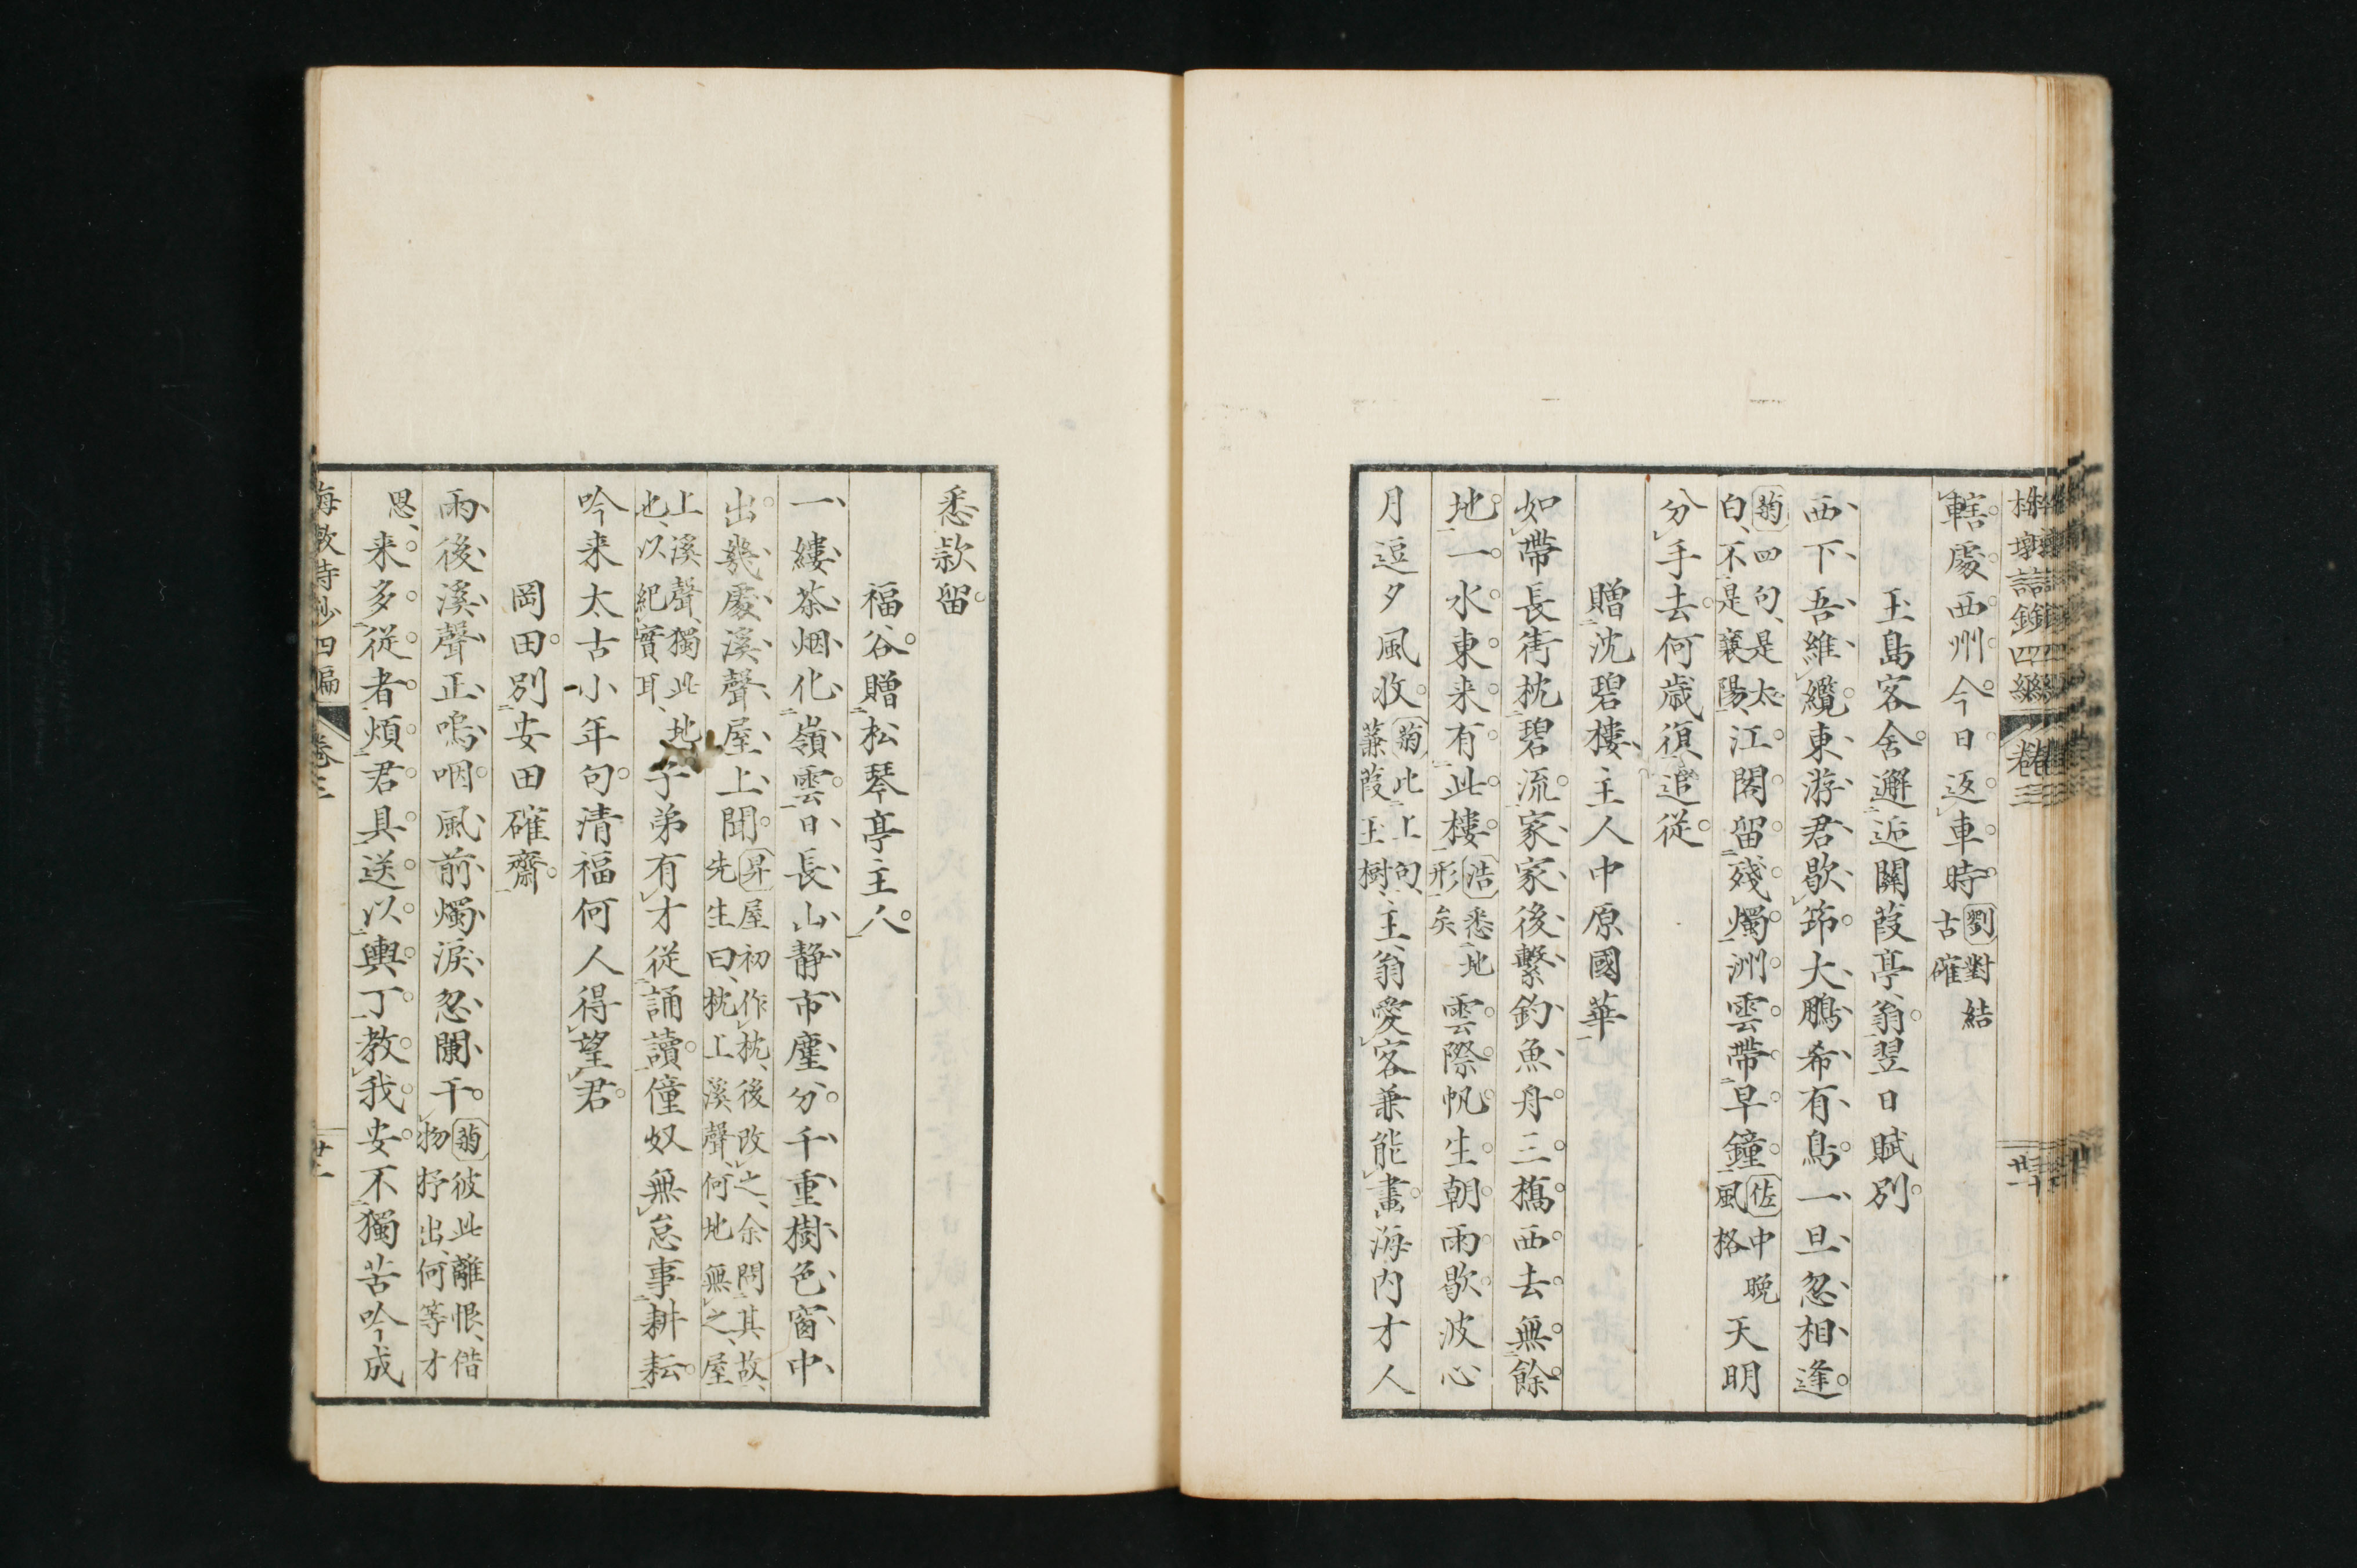 轄處西州今日返車時劉對結古確
玉島客舍邂逅關葭亭翁翌日賦別
西下吾維纜東游君歇筇大鵬希有鳥一旦忽相逢
菊四句、是太白、不是襄陽、江閣留殘燭洲雲帶早鐘佐中晩風格天明
分手去何歲復追從
贈沈碧樓主人中原國華
如帶長街枕碧流家家後繫釣魚舟三橋西去無餘
地一水東来有此樓浩悉地形矣雲際帆生朝雨歇波心
月逗夕風收菊此上句、蒹葭玉樹、主翁愛客兼能畫海内才人
悉款留
福谷贈松琴亭主人
一縷茶烟化嶺雲日長山静市塵分千重樹色窗中
出幾處溪聲屋上聞昇屋初作枕、後改之、余問其故、先生曰、枕上溪聲、何地無之、屋
上溪聲、獨此地也、以紀實耳、子弟有才從誦讀僮奴無怠事耕耘
吟来太古小年句清福何人得望君
岡田別安田確齋
雨後溪聲正嗚咽風前燭淚忽闌干菊彼此離恨、借物抒出、何等才
思、来多從者煩君具送以輿丁教我安不獨苦吟成
海敦詩鈔四編 卷三 廿二